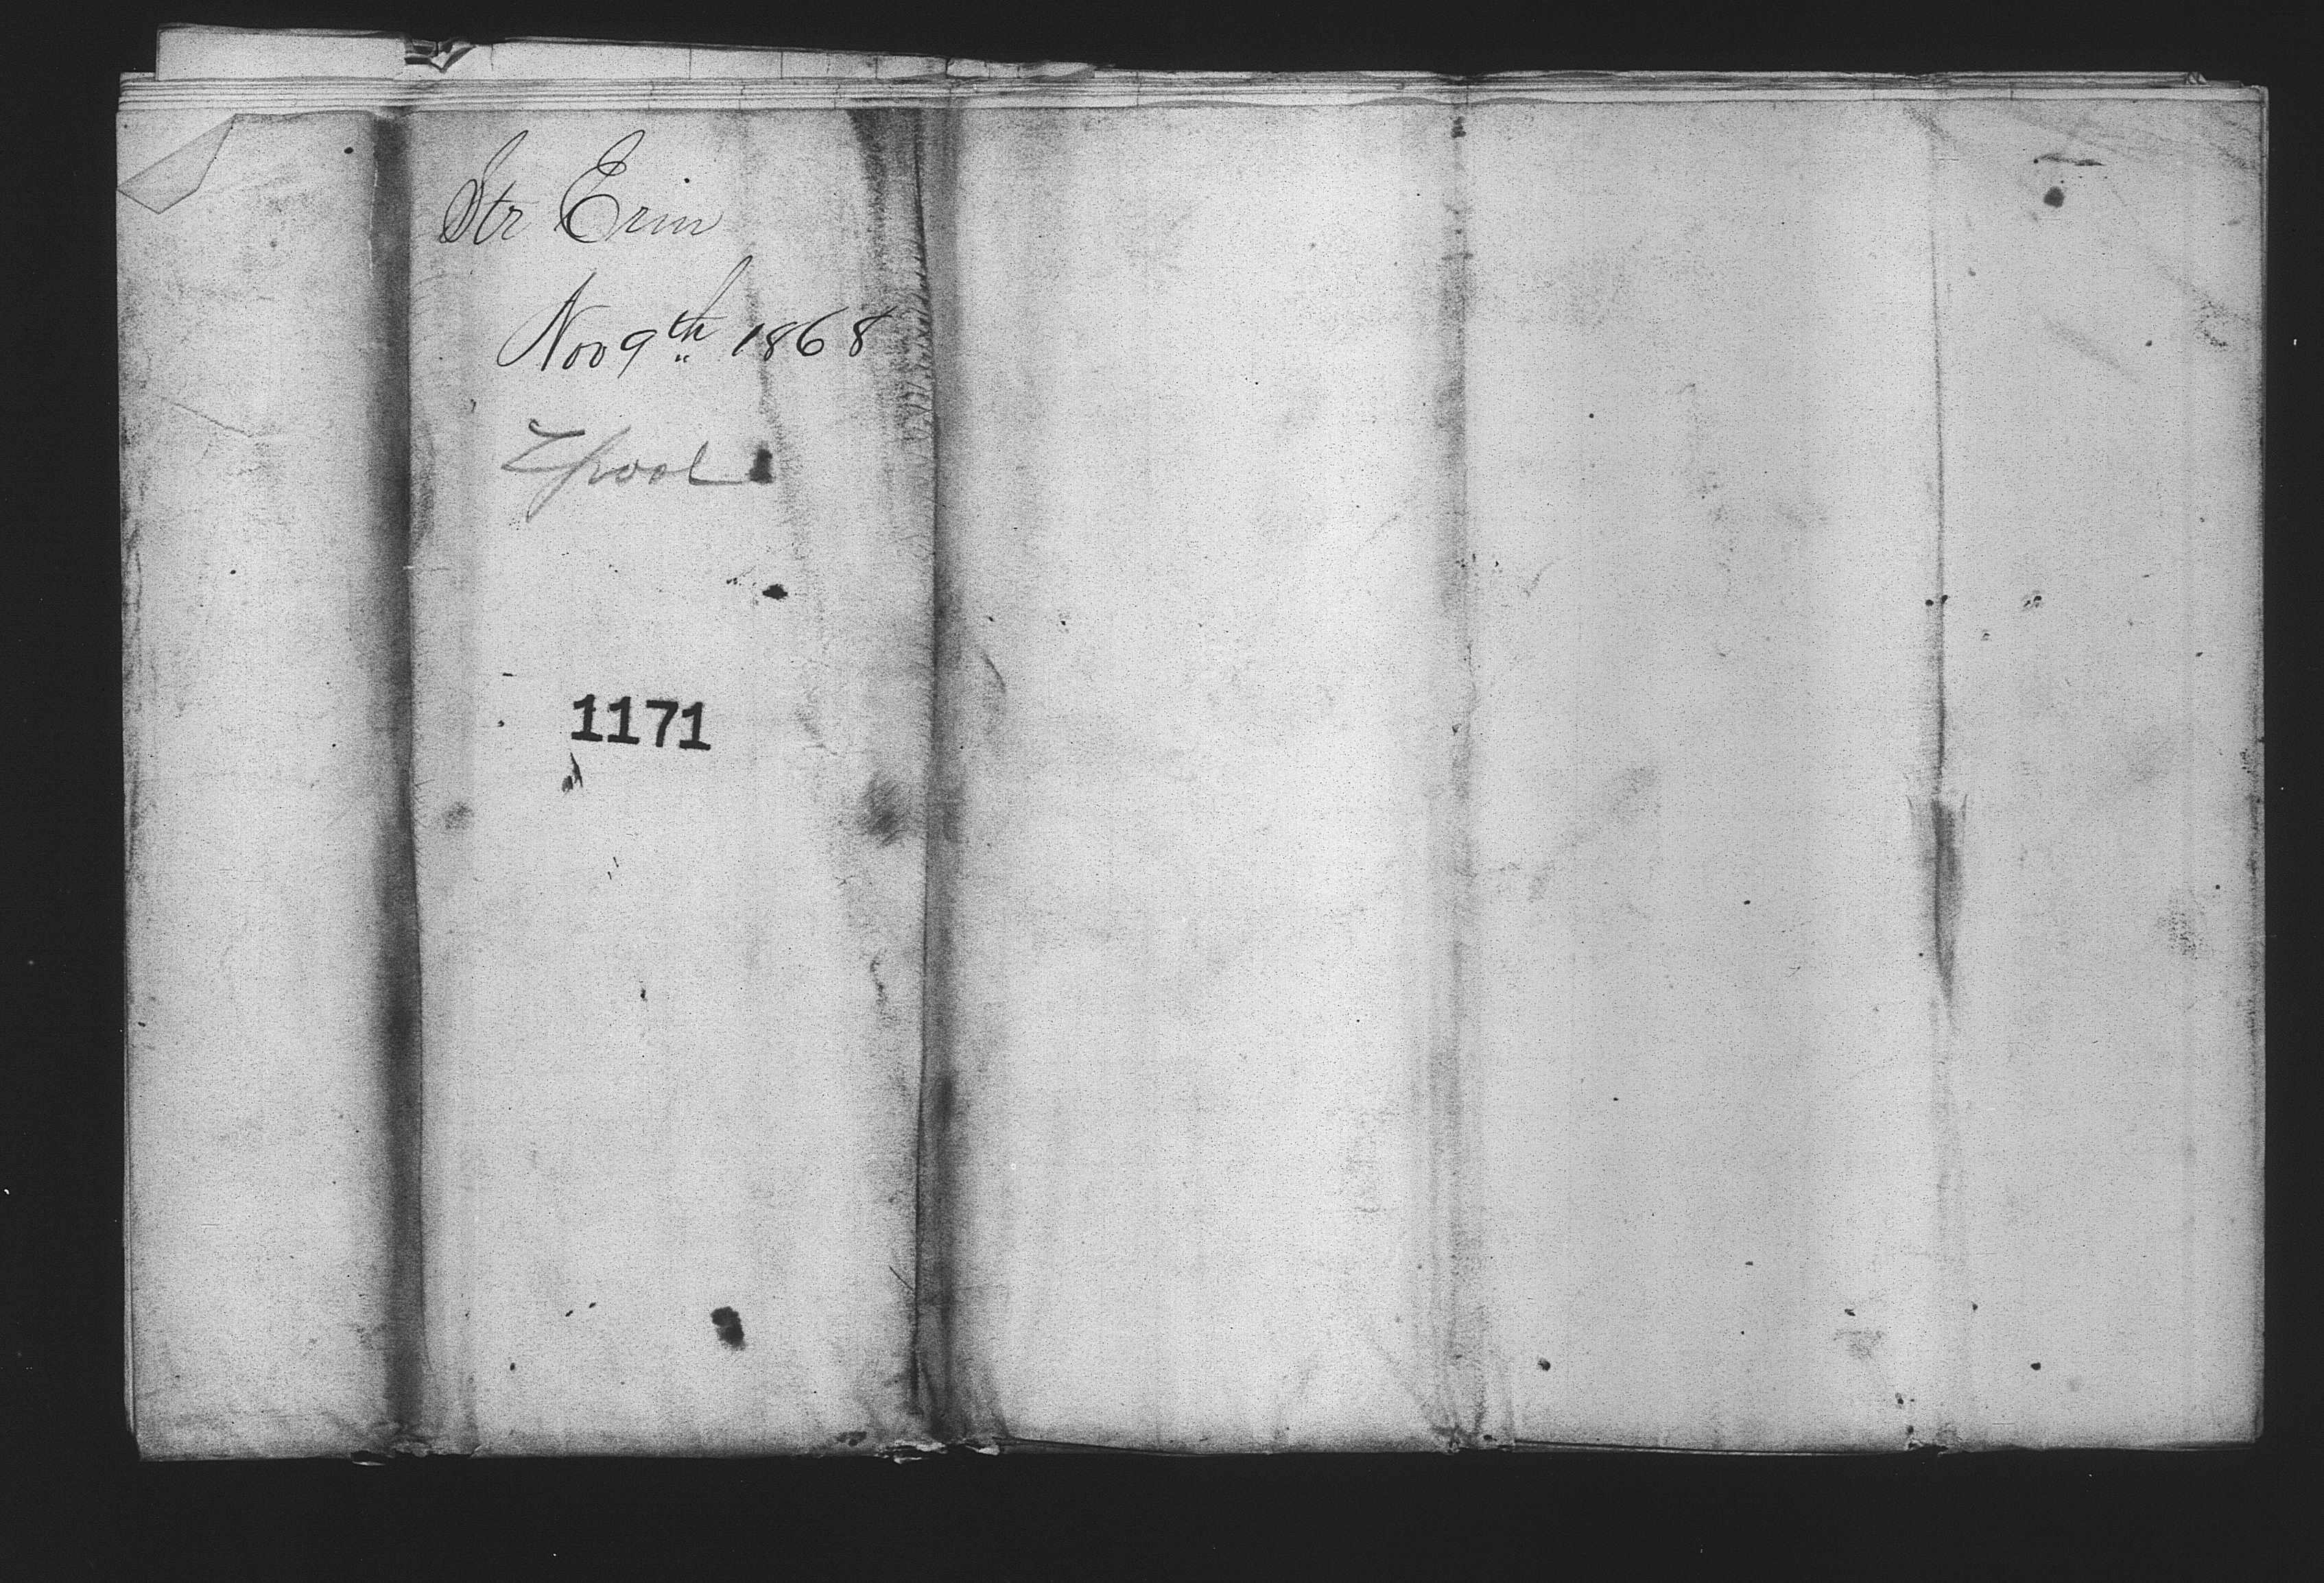 Str Erin
Nov 9th 1868
Lpool
1171